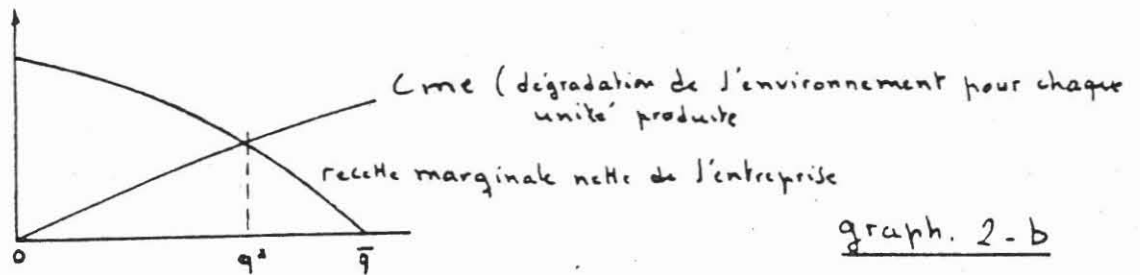 Cme (dégradation de l'environnement pour chaque
unité produite
recette marginale nette de l'entreprise
graph. 2-b
0 q* q̄